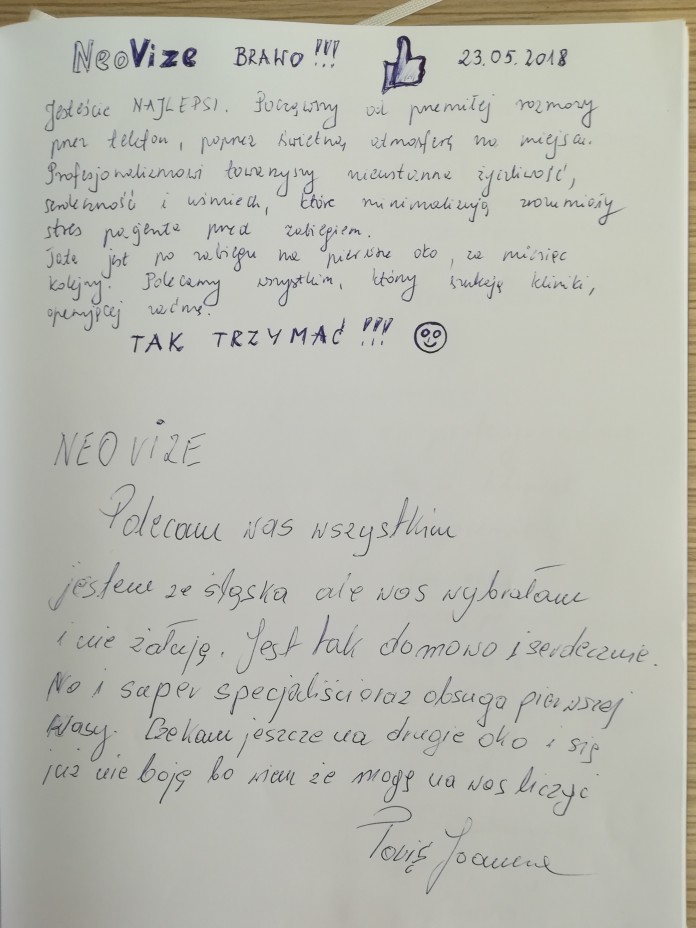 NeoVize BRAWO !!! 23.05.2018
Jesteście NAJLEPSI. Począwszy od przemiłej rozmowy
przez telefon, poprzez świetną atmosferę na miejscu.
Profesjonalizmowi towarzyszy nieustanna życzliwość,
serdeczność i uśmiech, które minimalizują zrozumiały
stres pacjenta przed zabiegiem.
jest po zabiegu na pierwsze oko, za miesiąc
kolejny. Polecamy wszystkim, którzy szukają kliniki,
operującej zaćmę.
TAK TRZYMAĆ !!!
NEOVIZE
Polecam was wszystkim
jestem ze śląska ale was wybrałam
i nie żałuję. Jest tak domowo i serdecznie.
No i super specjaliści oraz obsuga pierwszej
klasy. Czekam jeszcze na drugie oko i się
już nie boję bo wiem że mogę na was liczyć
Joanna